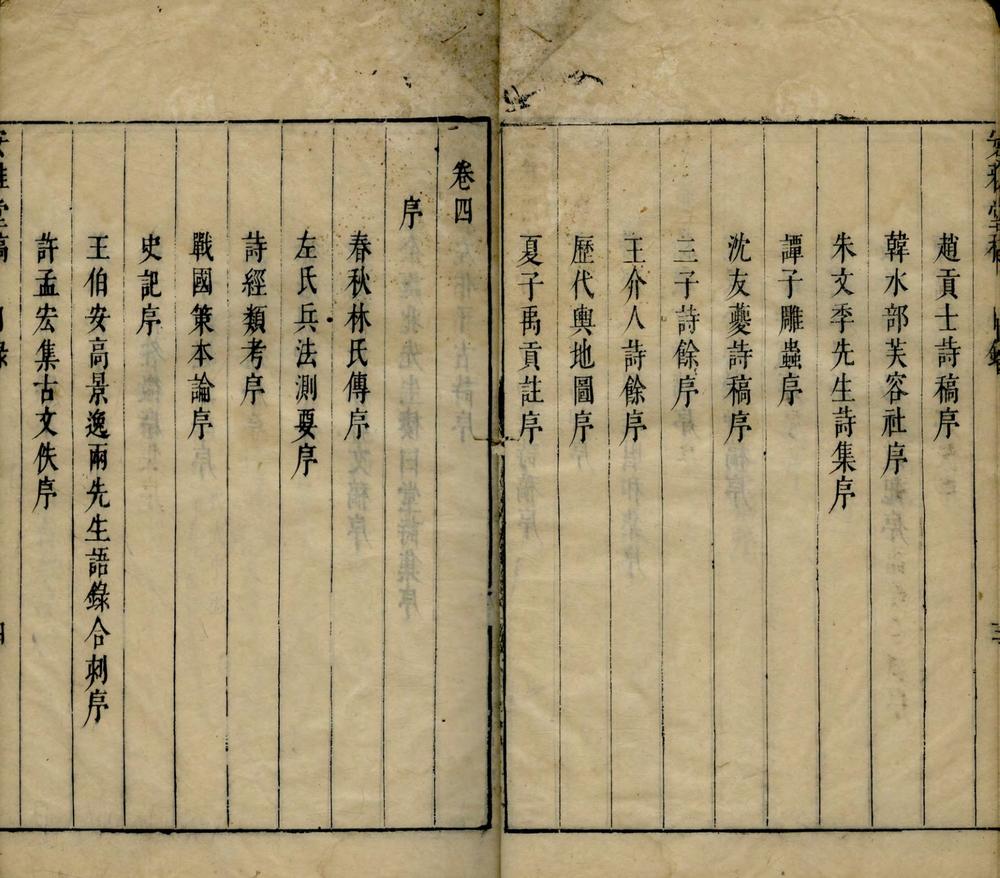 趙貢士詩稿序
韓水部芙容社序
朱文季先生詩集序
譚子雕蟲序
沈友夔詩稿序
三子詩餘序
王介人詩餘序
歷代輿地圖序
夏子禹貢註序
卷四
序
春秋林氏傳序
左氏兵法測要序
詩經類考序
戰國策本論序
史記序
王伯安高景逸兩先生語錄合刺序
許孟宏集古文佚序